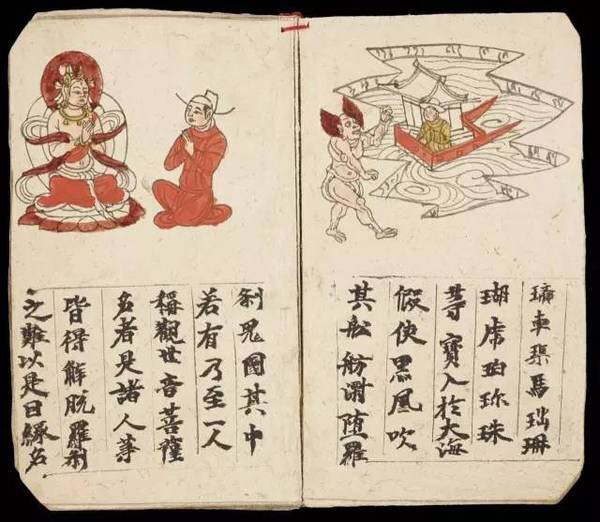 璃車渠馬瑙珊
瑚虎珀珎珠
等寶入於大海
假使黒風吹
其舩舫漂堕羅
刹鬼國其中
若有乃至一人
稱觀世音菩薩
名者是諸人等
皆得解脱羅刹
之難以是因縁名